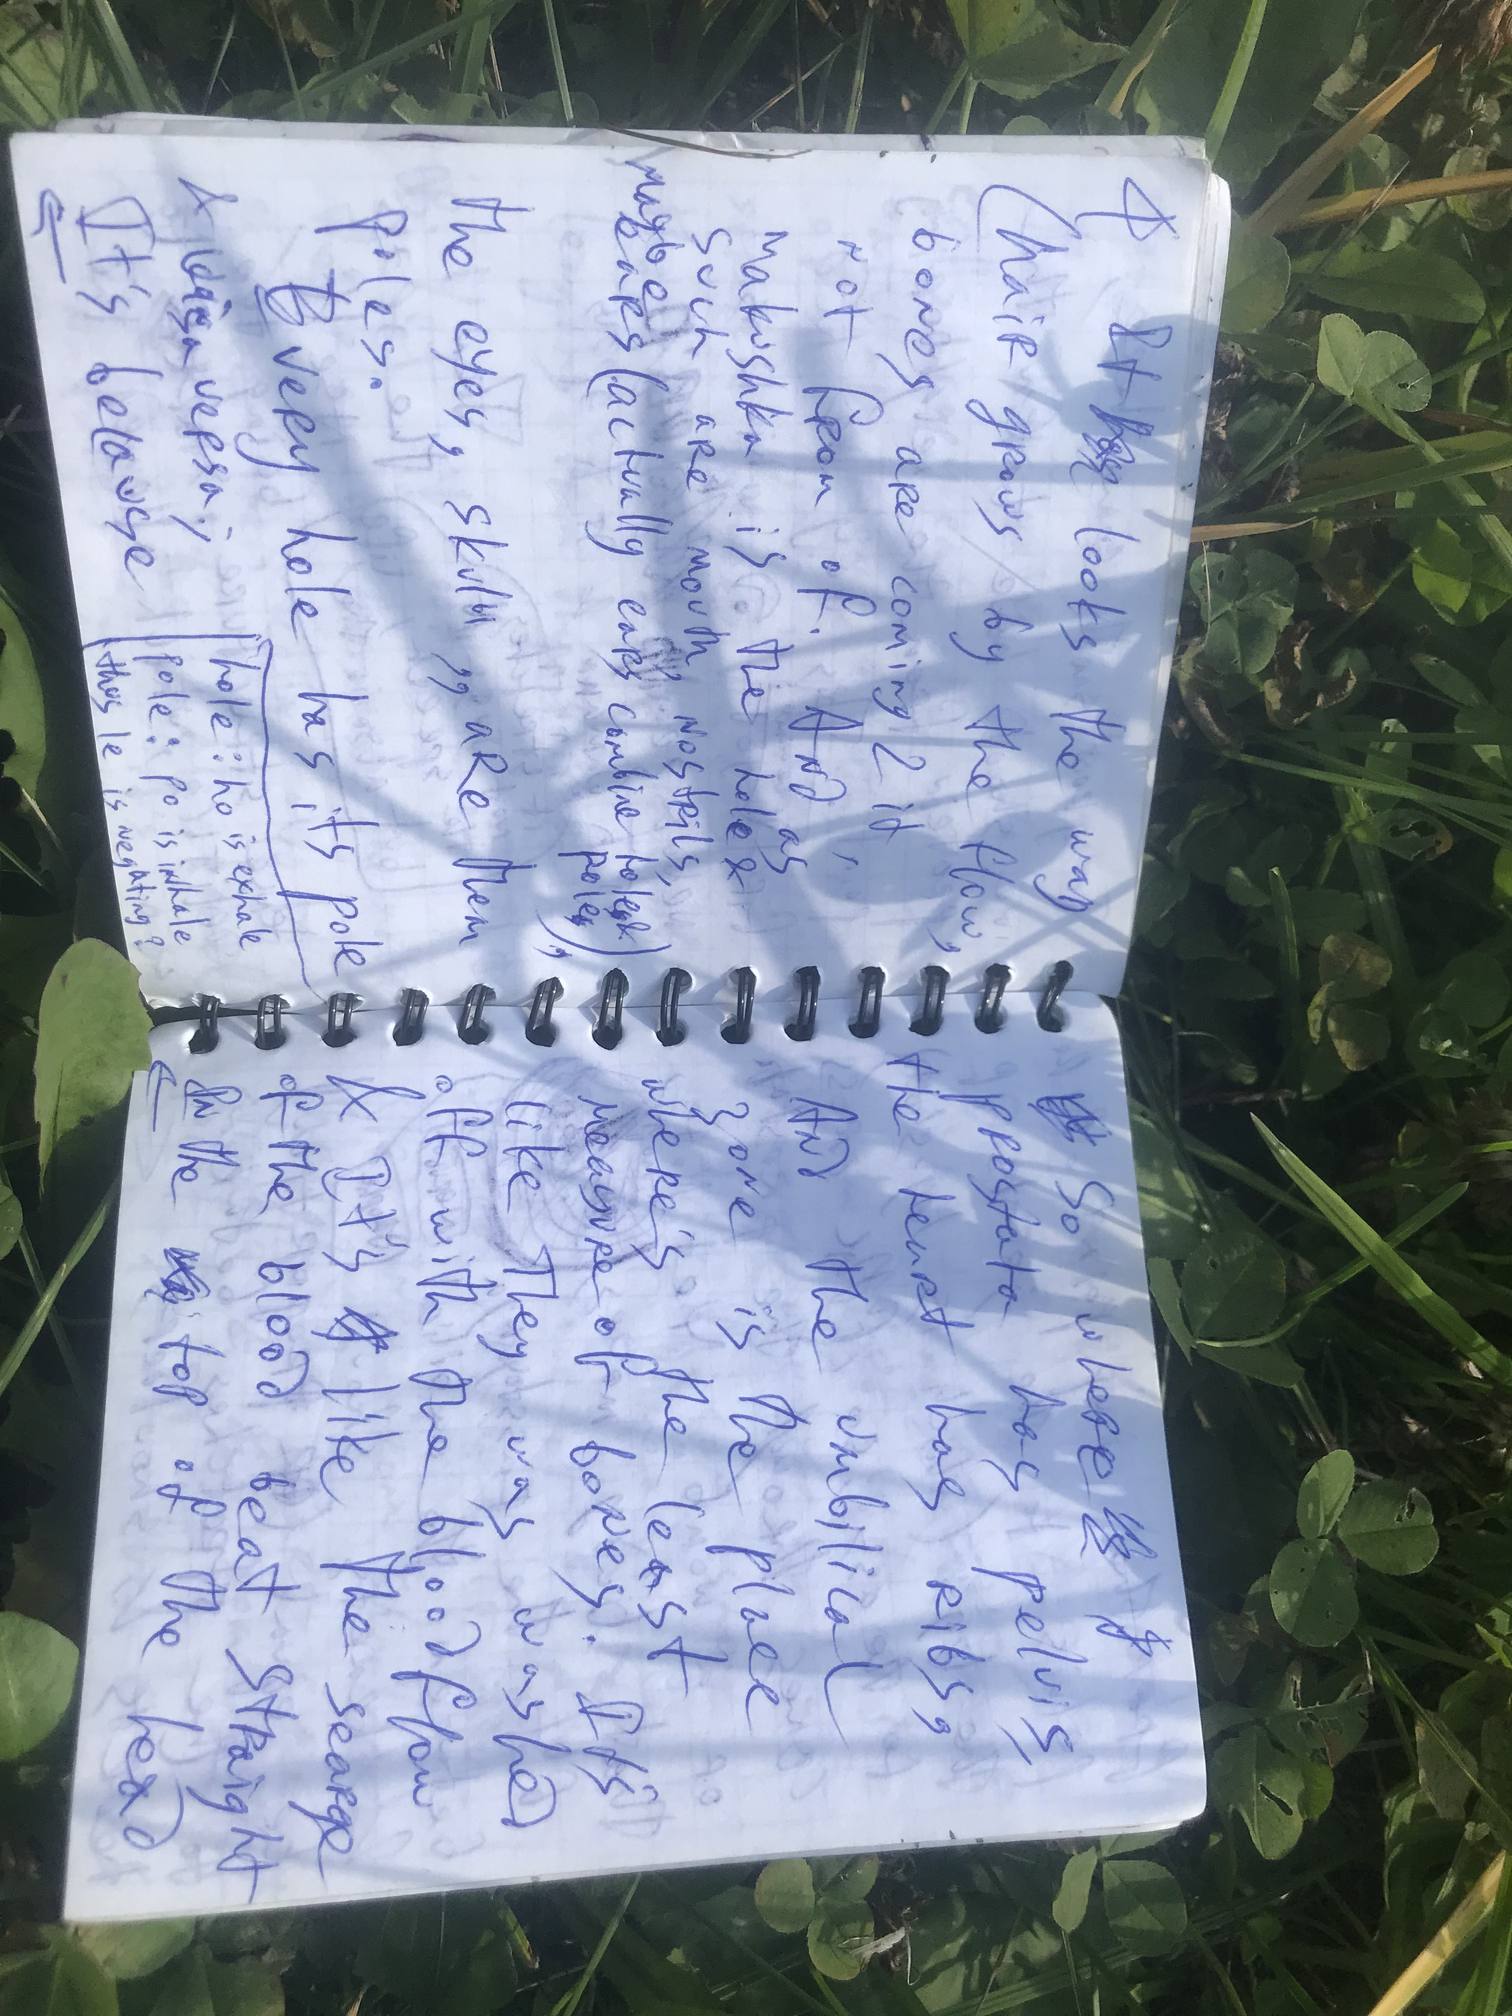 It looks the way
(hair grows by the flow,
bones are coming 2 it,
not from of. And,
makushka is the hole &
such are mouth nostrils, as
maybe ears (actually ears combine holes &
poles),
the eyes, skulls, are them
poles.
Every hole has its pole
& vica versa;
It's because
hole: ho is exhale
pole: po is inhale
thus le is negating?
So where
prostata has pelvis,
the heart has ribs,
And the umbilical
zone is the place
where's the least
measure of bones. It's
like They was washed
off with the blood flow
& It's like the searge
of the blood beat straight
in the top of the head